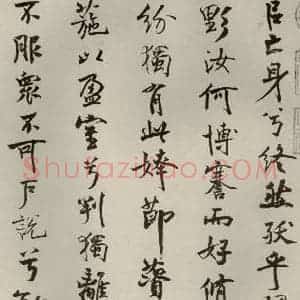 以亡身兮終然殀乎
野汝何博謇而好脩
紛獨有此姱節薋
葹以盈室兮判獨離
不服眾不可戶說兮